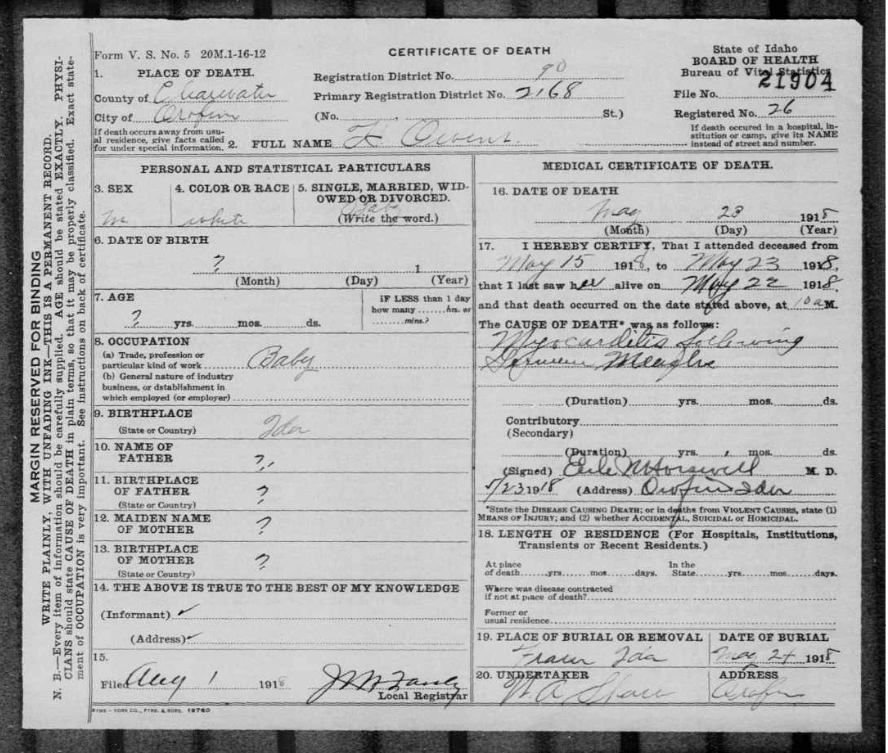 Form V. S. No. 5 20M.1-16-12
CERTIFICATE OF DEATH
State of Idaho
BOARD OF HEALTH
Bureau of Vital Statistics
21904
File No.
Registered No. 26
If death occured in a hospital, institution or camp, give its NAME instead of street and number.
1. PLACE OF DEATH.
County of Clearwater
City of Orofino
If death occurs away from usual residence, give facts called for under special information.
Registration District No. 90
Primary Registration District No. 2168
(No. St.)
2. FULL NAME Owens
MARGIN RESERVED FOR BINDING
WRITE PLAINLY, WITH UNFADING INK—THIS IS A PERMANENT RECORD.
N. B.—Every item of information should be carefully supplied. AGE should be stated EXACTLY. PHYSI-
CIANS should state CAUSE OF DEATH in plain terms, so that it may be properly classified. Exact state-
ment of OCCUPATION is very important. See instructions on back of certificate.
PERSONAL AND STATISTICAL PARTICULARS
3. SEX
m
4. COLOR OR RACE
white
5. SINGLE, MARRIED, WID-
OWED OR DIVORCED.
Baby
(Write the word.)
6. DATE OF BIRTH
? 1
(Month) (Day) (Year)
7. AGE
? yrs. mos. ds.
IF LESS than 1 day
how many hrs. or
mins.?
8. OCCUPATION
(a) Trade, profession or
particular kind of work Baby
(b) General nature of industry
business, or dstablishment in
which employed (or employer)
9. BIRTHPLACE
(State or Country) Ida
10. NAME OF
FATHER ?
11. BIRTHPLACE
OF FATHER ?
(State or Country)
12. MAIDEN NAME
OF MOTHER ?
13. BIRTHPLACE
OF MOTHER ?
(State or Country)
14. THE ABOVE IS TRUE TO THE BEST OF MY KNOWLEDGE
(Informant) ✓
(Address) ✓
15.
Filed Aug 1 1918
Local Registrar
SYMS - YORK CO., PTRS. & BDRS. 19760
MEDICAL CERTIFICATE OF DEATH.
16. DATE OF DEATH
May 23 1918
(Month) (Day) (Year)
17. I HEREBY CERTIFY, That I attended deceased from
May 15 1918, to May 23 1918,
that I last saw her alive on May 22 1918,
and that death occurred on the date stated above, at 10 a M.
The CAUSE OF DEATH* was as follows:
Myocarditis following
German Measles
(Duration) yrs. mos. ds.
Contributory
(Secondary)
(Duration) yrs. mos. ds.
(Signed) Horswell M. D.
5/23 1918 (Address) Orofino Ida
*State the DISEASE CAUSING DEATH; or in deaths from VIOLENT CAUSES, state (1)
MEANS OF INJURY; and (2) whether ACCIDENTAL, SUICIDAL or HOMICIDAL.
18. LENGTH OF RESIDENCE (For Hospitals, Institutions,
Transients or Recent Residents.)
At place of death yrs. mos. days. In the State yrs. mos. days.
Where was disease contracted
if not at place of death?
Former or
usual residence
19. PLACE OF BURIAL OR REMOVAL
Fraser Ida
DATE OF BURIAL
May 24 1918
20. UNDERTAKER
ADDRESS
Orofino